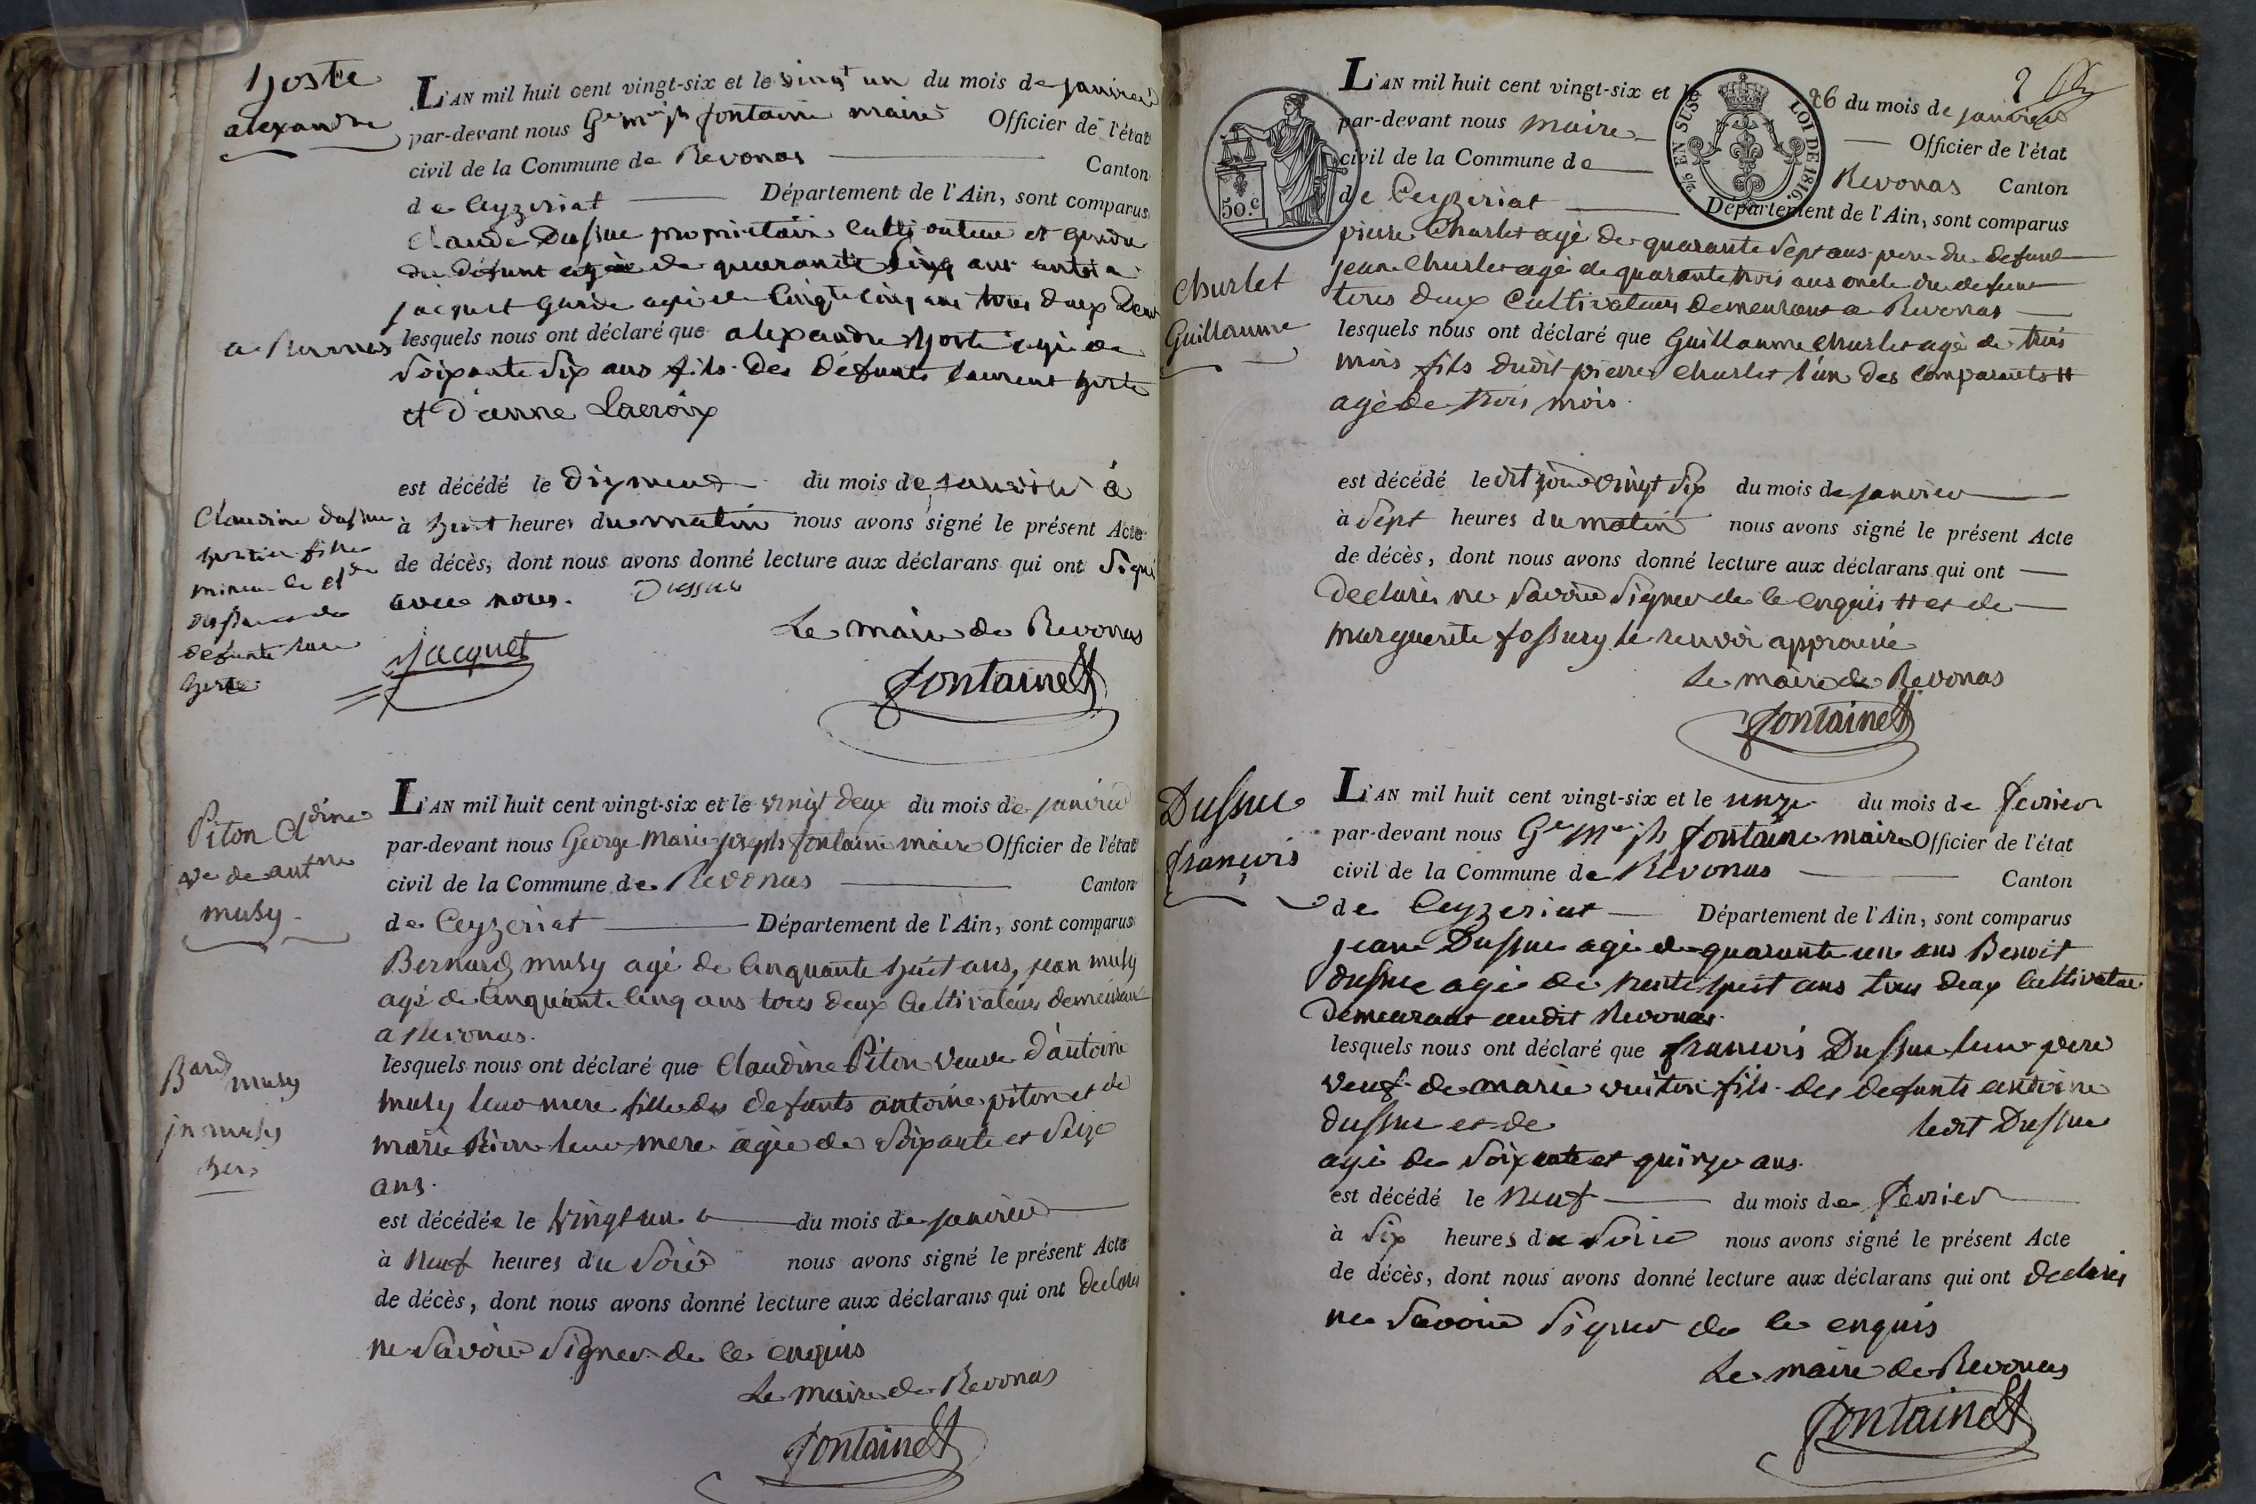 hoste
alexandre
L'AN mil huit cent vingt-six et le vingt un du mois de janvier
par-devant nous Ge mie jh fontaine maire Officier de l'état
civil de la Commune de Revonas Canton
de Ceyzeriat Département de l'Ain, sont comparus
Claude Dufsuc propriétaire Cultivateur et gendre
du défunt agé de quarante cinq ans antoi
jacquet garde agé de Cinqte cinq ans tous deux Dem
a Revonas
lesquels nous ont déclaré que alexandre hoste agé de
Soixante Six ans fils des Défunts laurent hoste
et d'anne Lacroix
est décédé le dixneuf du mois de janvier à
à huit heures du matin nous avons signé le présent Acte
de décès, dont nous avons donné lecture aux déclarans qui ont Signé
avec nous. Dussuc
Claudine dufsuc
fille
mineure
defunte
hoste
Le maire de Revonas
Jacquet
fontaine
Piton Cldine
ve de antne
musy
L'AN mil huit cent vingt-six et le vingt deux du mois de janvier
par-devant nous George Marie joseph fontaine maire Officier de l'état
civil de la Commune de Revonas Canton
de Ceyzeriat Département de l'Ain, sont comparus
Bernard musy agé de Cinquante huit ans, jean musy
agé de Cinquante Cinq ans tous deux Cultivateurs demeurant
a Revonas.
lesquels nous ont déclaré que Claudine Piton veuve d'antoine
musy leur mere fille des defunts antoine piton et de
marie leur mere agée de Soixante et Seize
ans.
Bard musy
jn musy
est décédée le vingt un du mois de janvier
à neuf heures du Soir nous avons signé le présent Acte
de décès, dont nous avons donné lecture aux déclarans qui ont declarés
ne Savoir Signer de ce enquis
Le maire de Revonas
fontaine
2
L'AN mil huit cent vingt-six et le 26 du mois de janvier
par-devant nous maire Officier de l'état
civil de la Commune de Revonas Canton
de Ceyzeriat Département de l'Ain, sont comparus
50.c
EN SUS
LOI DE 1816.
Charlet
Guillaume
pierre Charlet agé de quarante Sept ans pere du defunt
jean Charlet agé de quarante trois ans oncle du defunt
tous deux Cultivateurs demeurant a Revonas
lesquels nous ont déclaré que Guillaume Charlet agé de trois
mois fils dudit pierre Charlet l'un des Comparants #
agé de trois mois.
est décédé le dit jour vingt Six du mois de janvier
à Sept heures du matin nous avons signé le présent Acte
de décès, dont nous avons donné lecture aux déclarans qui ont
declarés ne Savoir Signer de ce enquis # et de
marguerite fossury le renvoi approuvé
Le maire de Revonas
fontaine
Dufsuc
françois
L'AN mil huit cent vingt-six et le onze du mois de fevrier
par-devant nous Ge Mie jh fontaine maire Officier de l'état
civil de la Commune de Revonas Canton
de Ceyzeriat Département de l'Ain, sont comparus
jean Dufsuc agé de quarante un ans Benoit
dufsuc agé de trente huit ans tous deux Cultivateur
demeurant audit Revonas.
lesquels nous ont déclaré que francois Dufsuc leur pere
veuf de marie vuiton fils des defunts antoine
dufsuc et de ledit Dufsuc
agé de Soixante et quinze ans.
est décédé le neuf du mois de fevrier
à Six heures du Soir nous avons signé le présent Acte
de décès, dont nous avons donné lecture aux déclarans qui ont declarés
ne Savoir Signer de ce enquis
Le maire de Revonas
fontaine